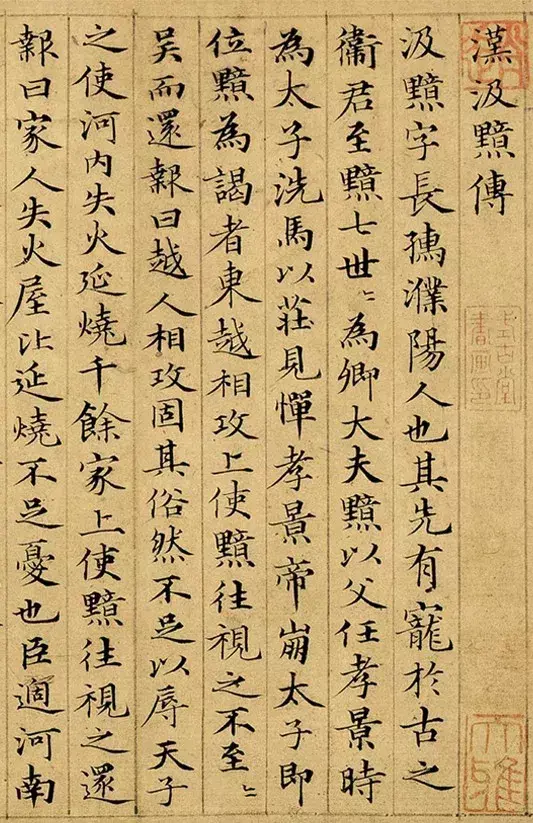 漢汲黯傳
汲黯字長孺濮陽人也其先有寵於古之
衛君至黯七世〻為卿大夫黯以父任孝景時
為太子洗馬以莊見憚孝景帝崩太子即
位黯為謁者東越相攻上使黯往視之不至〻
吳而還報曰越人相攻固其俗然不足以辱天子
之使河内失火延燒千餘家上使黯往視之還
報曰家人失火屋比延燒不足憂也臣適河南
式古堂
書畫印
大雅